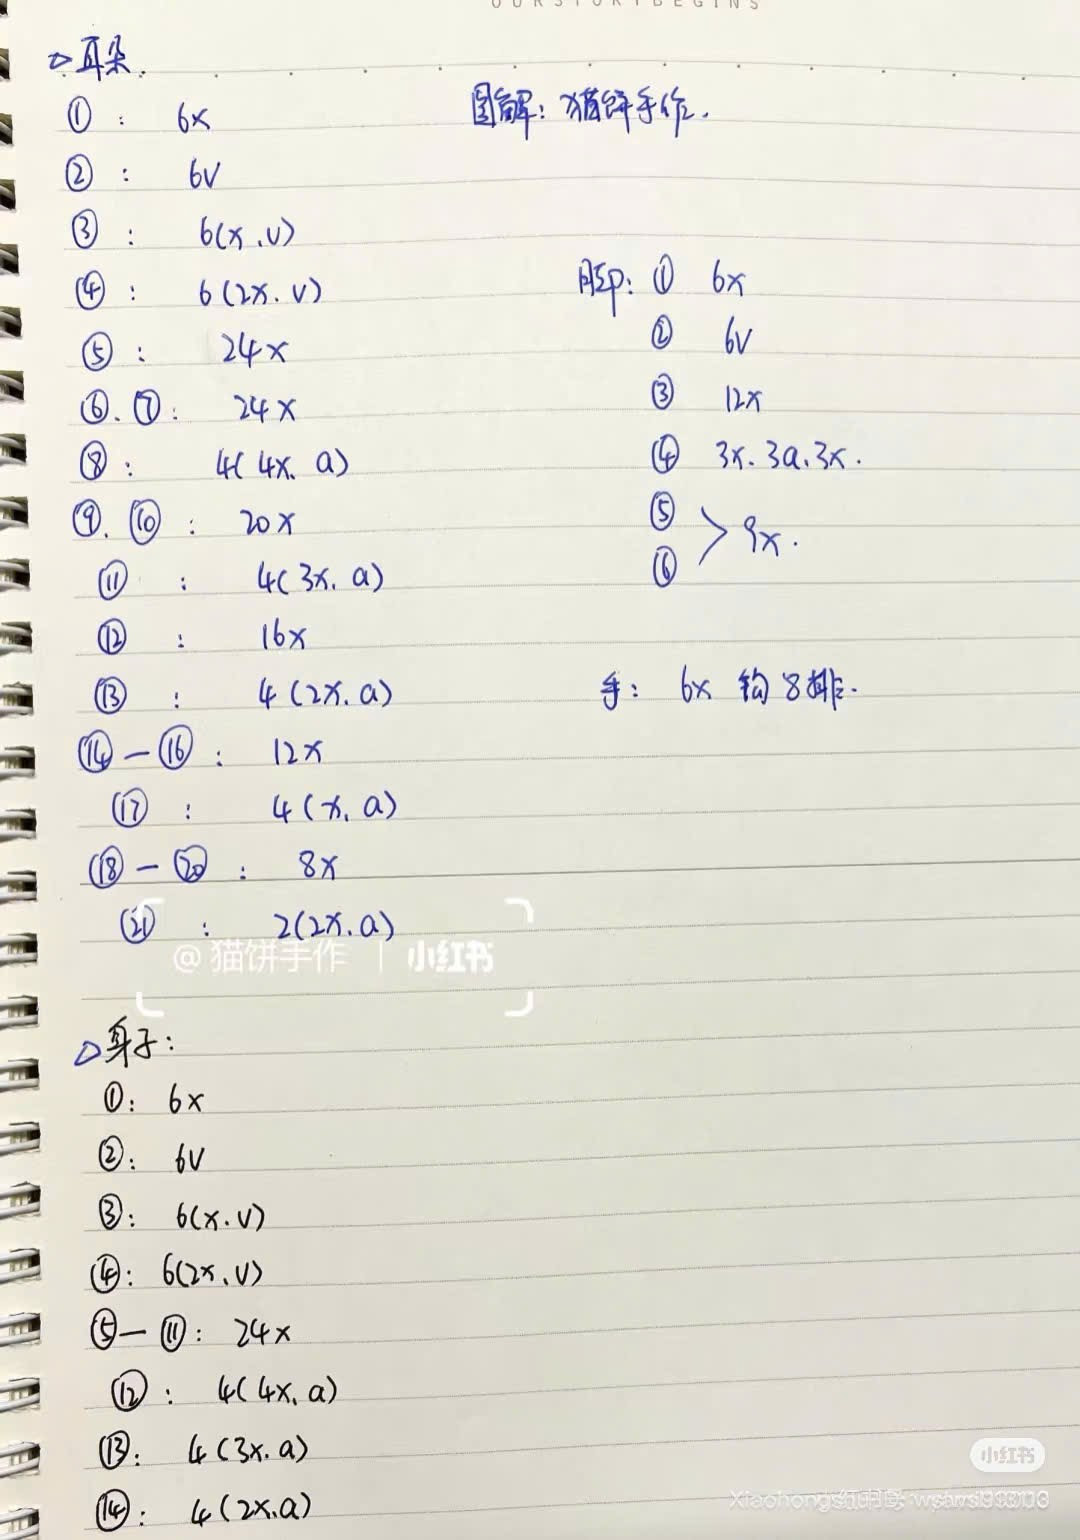 OURSTORYBEGINS
耳朵.
图解: 猫饼手作.
① : 6x
② : 6v
③ : 6(x.v)
④ : 6(2x.v)
⑤ : 24x
⑥.⑦: 24x
⑧ : 4(4x.a)
⑨.⑩ : 20x
⑪ : 4(3x.a)
⑫ : 16x
⑬ : 4(2x.a)
⑭—⑯ : 12x
⑰ : 4(x.a)
⑱—⑳ : 8x
㉑ : 2(2x.a)
脚: ① 6x
② 6v
③ 12x
④ 3x.3a.3x.
⑤
⑥ > 9x.
手: 6x 钩8排.
@猫饼手作 | 小红书
身子:
①: 6x
②: 6v
③: 6(x.v)
④: 6(2x.v)
⑤—⑪: 24x
⑫ : 4(4x.a)
⑬: 4(3x.a)
⑭: 4(2x.a)
小红书